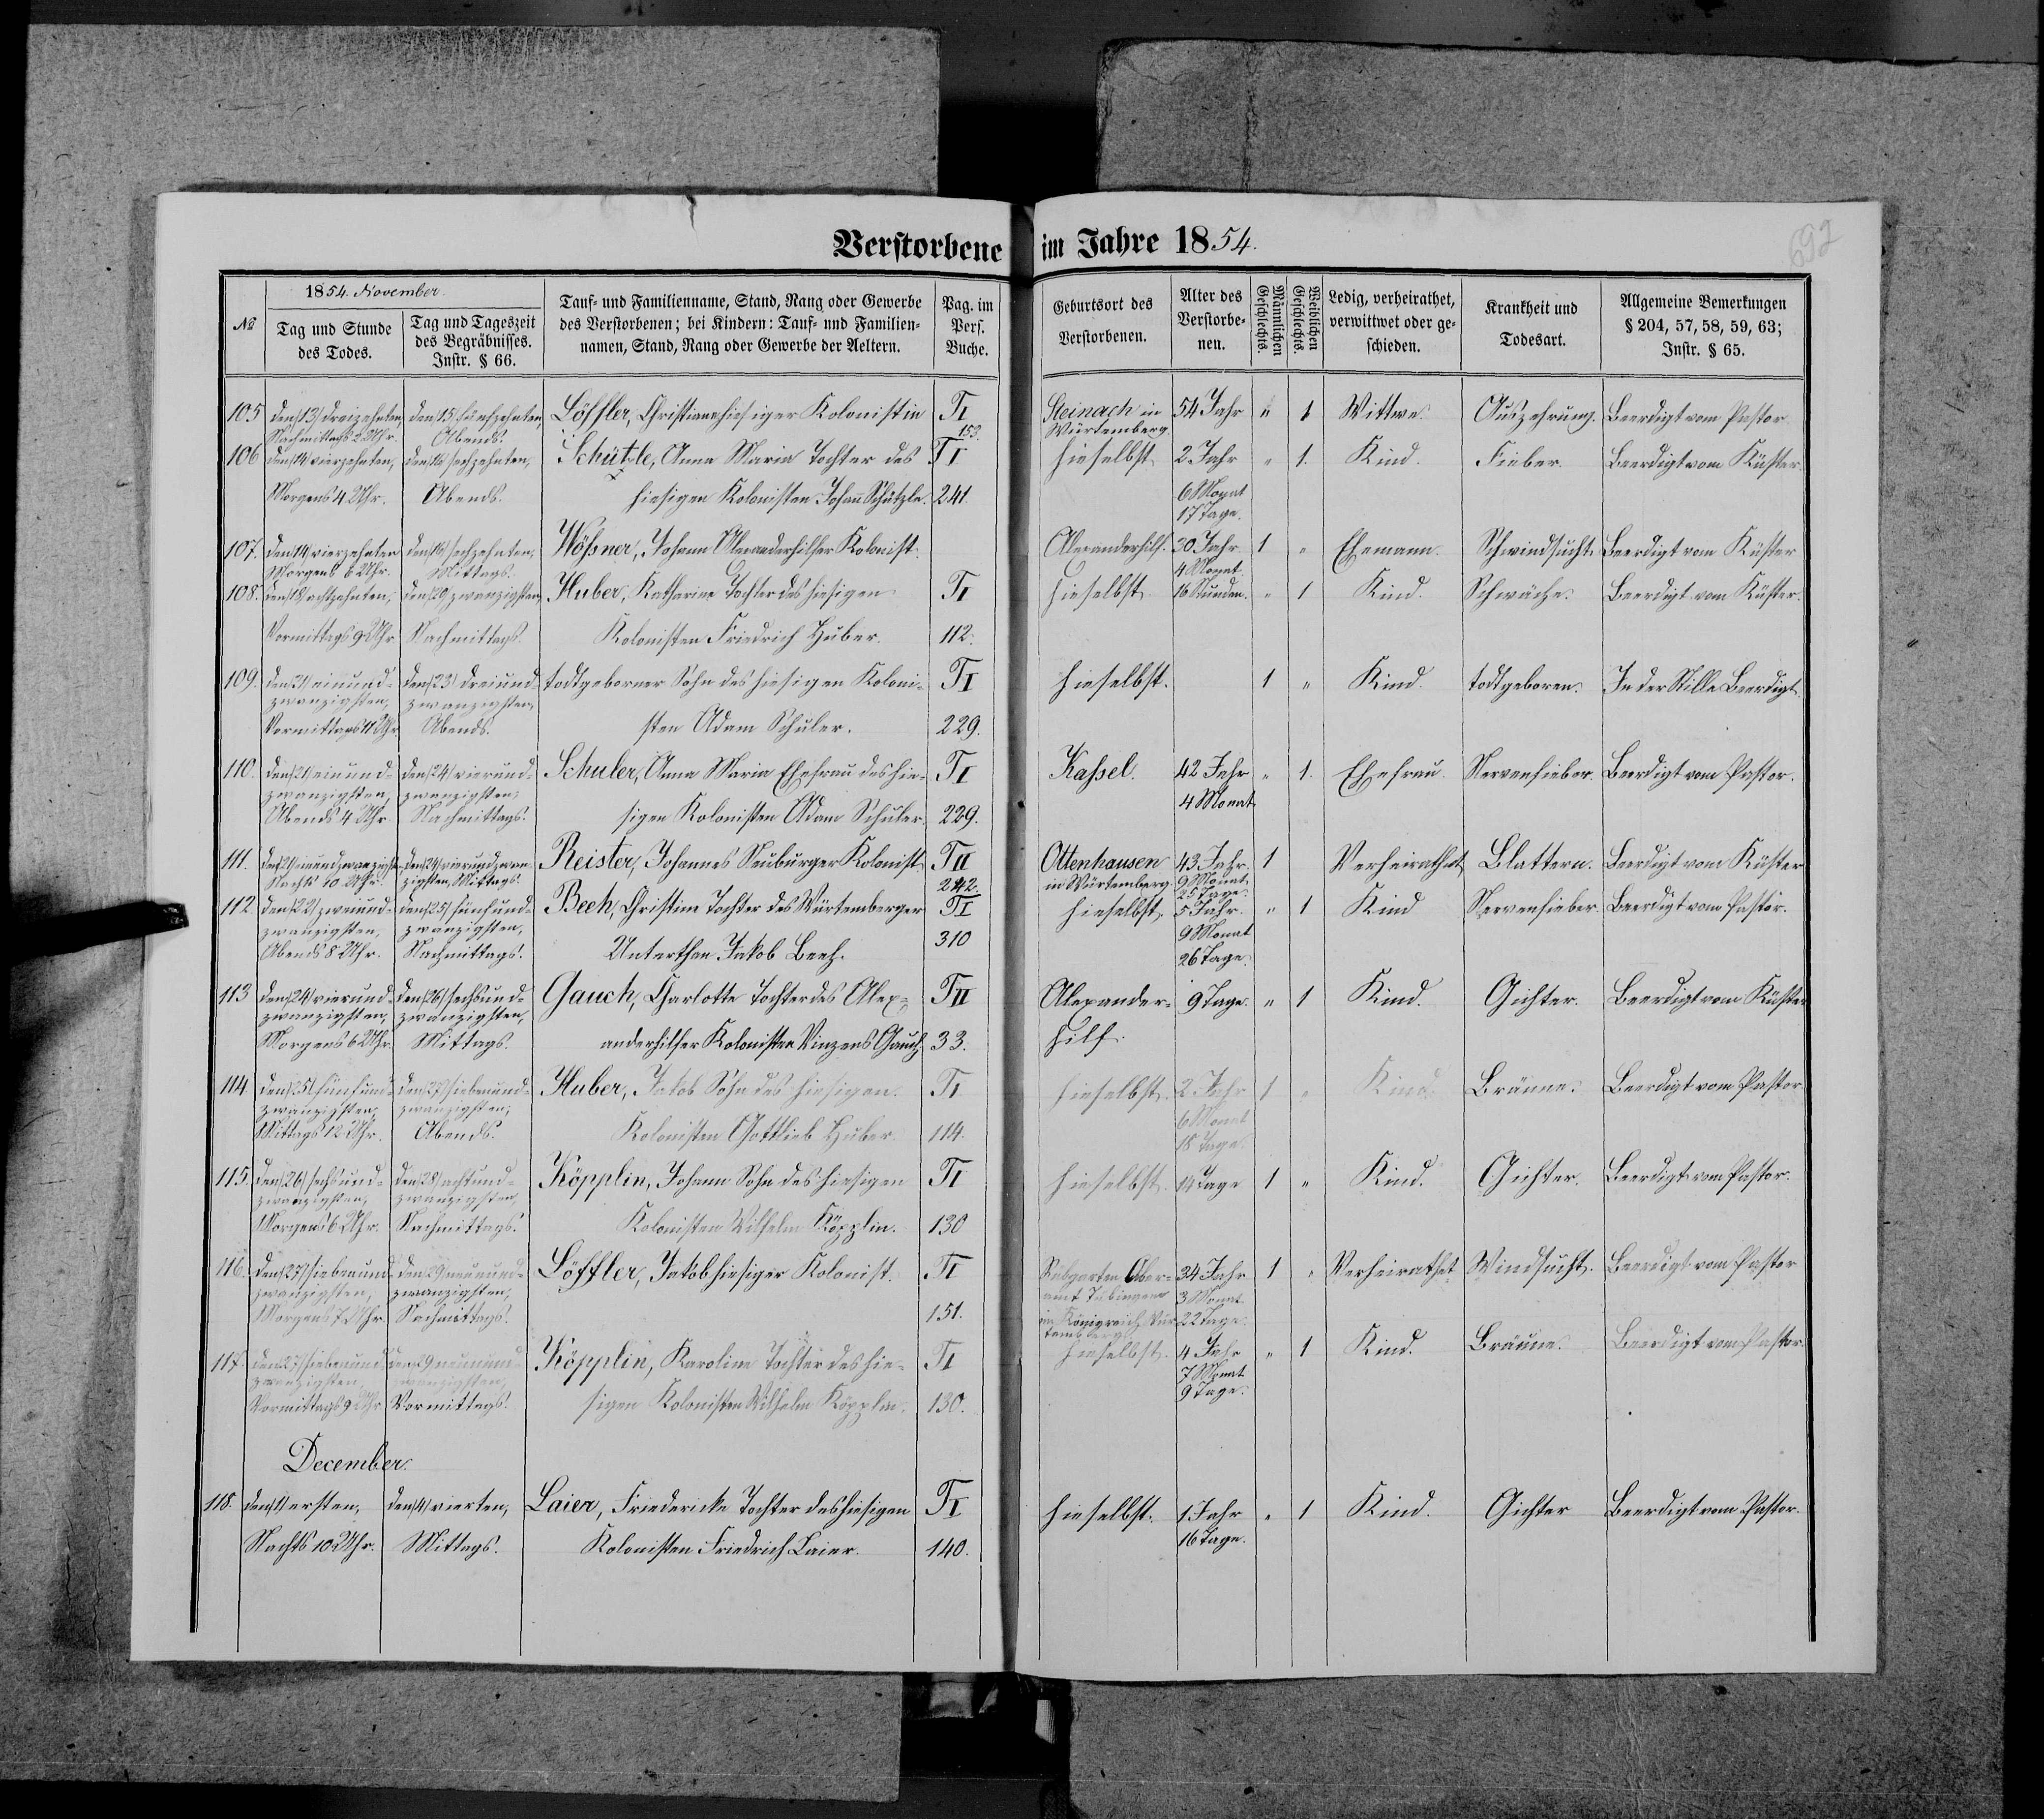 Verstorbene im Jahre 1854.
692
№
1854. November.
Tag und Stunde des Todes.
Tag und Tageszeit des Begräbnisses. Instr. § 66.
Tauf- und Familienname, Stand, Rang oder Gewerbe des Verstorbenen; bei Kindern: Tauf- und Familiennamen, Stand, Rang oder Gewerbe der Aeltern.
Pag. im Pers. Buche.
Geburtsort des Verstorbenen.
Alter des Verstorbenen.
Männlichen Geschlechts.
Weiblichen Geschlechts.
Ledig, verheirathet, verwittwet oder geschieden.
Krankheit und Todesart.
Allgemeine Bemerkungen § 204, 57, 58, 59, 63; Instr. § 65.
105 den 13 dreizehnten, den 15 funfzehnten, Löffler, Christiana hiesiger Kolonistin TI Steinach in 54 Jahr „ 1 Wittwe. Auszehrung. Beerdigt vom Pastor
Nachmittags 2 Uhr. Abends. 153. Würtemberg.
106 den 14 vierzehnten, den 16 sechzehnten, Schützle, Anna Maria Tochter des TI hieselbst. 2 Jahr „ 1. Kind. Fieber. Beerdigt vom Küster.
Morgens 4 Uhr. Abends. hiesigen Kolonisten Johann Schützle. 241. 6 Monat
17 Tage.
107. den 14 vierzehnten den 16 sechzehnten, Wößner, Johann Alexanderhilfer Kolonist. Alexanderhilf. 30 Jahr 1 „ Ehemann. Schwindsucht. Beerdigt vom Küster
Morgens 6 Uhr. Mittags. 4 Monat
108. den 18 achtzehnten, den 20 zwanzigsten, Huber, Katharina Tochter des hiesigen TI hieselbst. 16 Stunden. „ 1 Kind. Schwäche. Beerdigt vom Küster.
Vormittags 9 Uhr Nachmittags. Kolonisten Friedrich Huber. 112.
109. den 21 einund- den 23 dreiund- todtgeborner Sohn des hiesigen Koloni- TI hieselbst. 1 „ Kind. todtgeboren. In der Stille Beerdigt.
zwanzigsten, zwanzigsten,
Vormittags 11 Uhr Abends. sten Adam Schuler. 229.
110. den 21 einund- den 24 vierund- Schuler, Anna Maria Ehefrau des hie- TI Kaßel. 42 Jahr „ 1. Ehefrau. Nervenfieber. Beerdigt vom Pastor.
zwanzigsten, zwanzigsten, 4 Monat
Abends 4 Uhr Nachmittags. sigen Kolonisten Adam Schuler. 229.
111. den 21 einundzwanzigsten, den 24 vierundzwan- Reister, Johannes Neuburger Kolonist. TII Ottenhausen 43 Jahr. 1 Verheirathet Blattern. Beerdigt vom Küster
Nachts 10 Uhr. zigsten, Mittags. 242. in Würtemberg. 9 Monat.
25 Tage.
112. den 22 zweiund- den 25 funfund- Beeh, Christina Tochter des Würtemberger TI hieselbst. 5 Jahr. „ 1 Kind Nervenfieber. Beerdigt vom Pastor.
zwanzigsten, zwanzigsten, 9 Monat
Abends 8 Uhr. Nachmittags. Unterthan Jakob Beeh. 310 26 Tage.
113 den 24 vierund- den 26 sechsund- Gauch, Charlotte Tochter des Alex- TII Alexander- 9 Tage. „ 1 Kind. Gichter. Beerdigt vom Küster
zwanzigsten, zwanzigsten,
Morgens 6 Uhr. Mittags. anderhilfer Kolonisten Vinzens Gauch, 33. hilf.
114 den 25 funfund- den 27 siebenund- Huber, Jakob Sohn des hiesigen. TI hieselbst. 2 Jahr 1 „ Kind. Bräune. Beerdigt vom Pastor
zwanzigsten, zwanzigsten, 6 Monat
Mittags 12 Uhr. Abends. Kolonisten Gottlieb Huber. 114. 18 Tage.
115. den 26 sechsund- den 28 achtund- Köpplin, Johann Sohn des hiesigen TI hieselbst. 14 Tage 1 „ Kind. Gichter. Beerdigt vom Pastor.
zwanzigsten, zwanzigsten,
Morgens 6 Uhr. Nachmittags. Kolonisten Wilhelm Köpplin. 130
116. den 27 siebenund den 29 neunund- Löffler, Jakob hiesiger Kolonist. TI Ober- 34 Jahr 1 „ Verheirathet Windsucht. Beerdigt vom Pastor
zwanzigsten, zwanzigsten, amt Tübingen 3 Monat
Morgens 7 Uhr. Nachmittags. 151. im Königreich Wür- 22 Tage.
temberg
117. den 27 siebenund den 29 neunund- Köpplin, Karolina Tochter des hie- TI hieselbst. 4 Jahr „ 1 Kind. Bräune. Beerdigt vom Pastor.
zwanzigsten, zwanzigsten, 7 Monat
Vormittags 9 Uhr Vormittags. sigen Kolonisten Wilhelm Köpplin. 130. 9 Tage.
December.
118. den 1 ersten, den 4 vierten, Laier, Friedericke Tochter des hiesigen TI hieselbst. 1 Jahr „ 1 Kind. Gichter Beerdigt vom Pastor.
Nachts 10 Uhr. Mittags. Kolonisten Friedrich Laier. 140. 16 Tage.